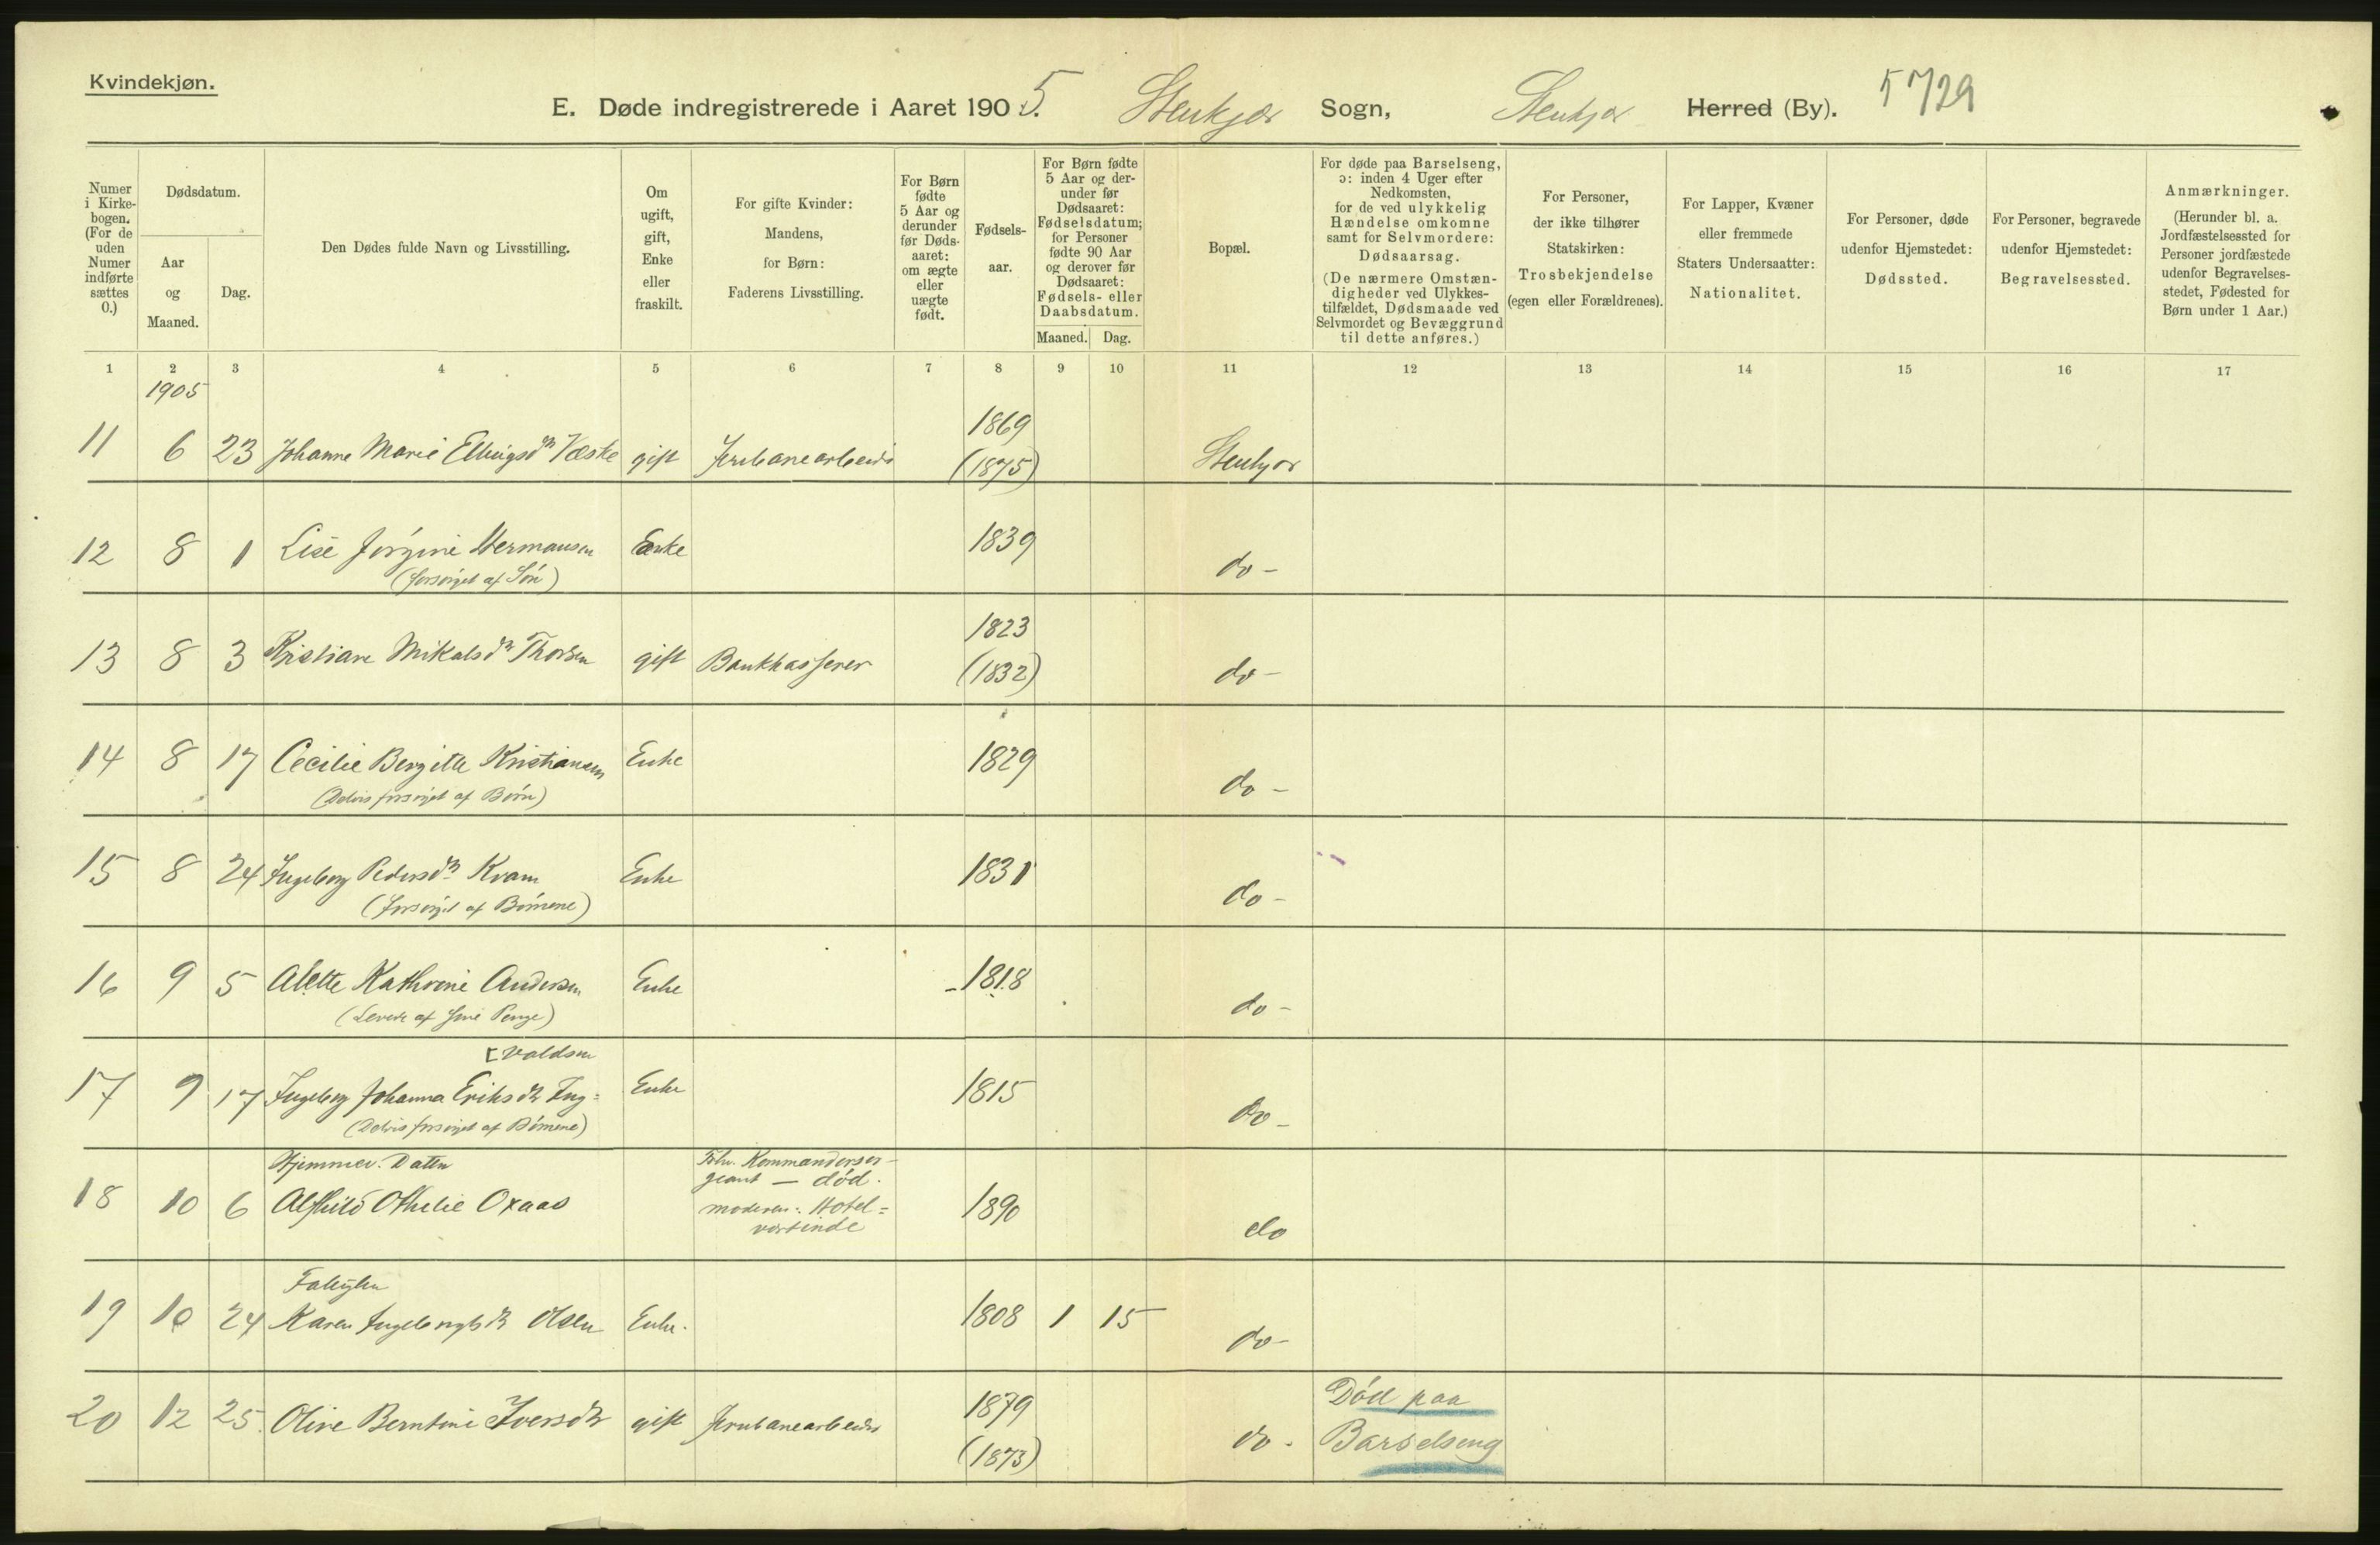 Kvindekjøn.
E. Døde indregistrerede i Aaret 1905. Stenkjær Sogn, Stenkjær Herred (By). 5729
Numer
i Kirke-
bogen.
(For de
uden
Numer
indførte
sættes
0.)
Dødsdatum.
Aar
og
Maaned.
Dag.
Den Dødes fulde Navn og Livsstilling.
Om
ugift,
gift,
Enke
eller
fraskilt.
For gifte Kvinder:
Mandens,
for Børn:
Faderens Livsstilling.
For Børn
fødte
5 Aar og
derunder
før Døds-
aaret:
om ægte
eller
uægte
født.
Fødsels-
aar.
For Børn fødte
5 Aar og der-
under før
Dødsaaret:
Fødselsdatum;
for Personer
fødte 90 Aar
og derover før
Dødsaaret:
Fødsels- eller
Daabsdatum.
Maaned. Dag.
Bopæl.
For døde paa Barselseng,
ɔ: inden 4 Uger efter
Nedkomsten,
for de ved ulykkelig
Hændelse omkomne
samt for Selvmordere:
Dødsaarsag.
(De nærmere Omstæn-
digheder ved Ulykkes-
tilfældet, Dødsmaade ved
Selvmordet og Bevæggrund
til dette anføres.)
For Personer,
der ikke tilhører
Statskirken:
Trosbekjendelse
(egen eller Forældrenes).
For Lapper, Kvæner
eller fremmede
Staters Undersaatter:
Nationalitet.
For Personer, døde
udenfor Hjemstedet:
Dødssted.
For Personer, begravede
udenfor Hjemstedet:
Begravelsessted.
Anmærkninger.
(Herunder bl. a.
Jordfæstelsessted for
Personer jordfæstede
udenfor Begravelses-
stedet, Fødested for
Børn under 1 Aar.)
1 2 3 4 5 6 7 8 9 10 11 12 13 14 15 16 17
1905
1869
11 6 23 Johanne Marie Ellingsdtr Væske gift Jernbanearbeider (1875) Stenkjær
12 8 1 Lise Jørgine Hermansen Enke 1839 do -
(forsørget af Søn)
1823
13 8 3 Kristiane Mikalsdtr Thorsen gift Bankkasserer (1832) do -
14 8 17 Cecilie Bergitte Kristiansen Enke 1829 do -
(Delvis forsørget af Børn)
15 8 24 Ingeborg Pedersdtr Kvam Enke 1831 do -
(forsørget af Børnene)
16 9 5 Alette Kathrine Andersen Enke 1818 do -
(Levede af sine Penge)
[valdsen
17 9 17 Ingeborg Johanna Eriksdtr Ing= Enke 1815 do -
(Delvis forsørget af Børnene)
Hjemmev. Datter Fhv. Kommanderser-
geant — død.
18 10 6 Alfhild Othilie Oxaas moderen: Hotel= 1890 do
vertinde
19 10 24 Karen Ingebrigtsdtr Olsen Enke. 1808 1 15 do -
1879 Død paa
20 12 25. Oline Berntine Iversdtr gift Jernbanearbeider do - Barselseng
(1873)